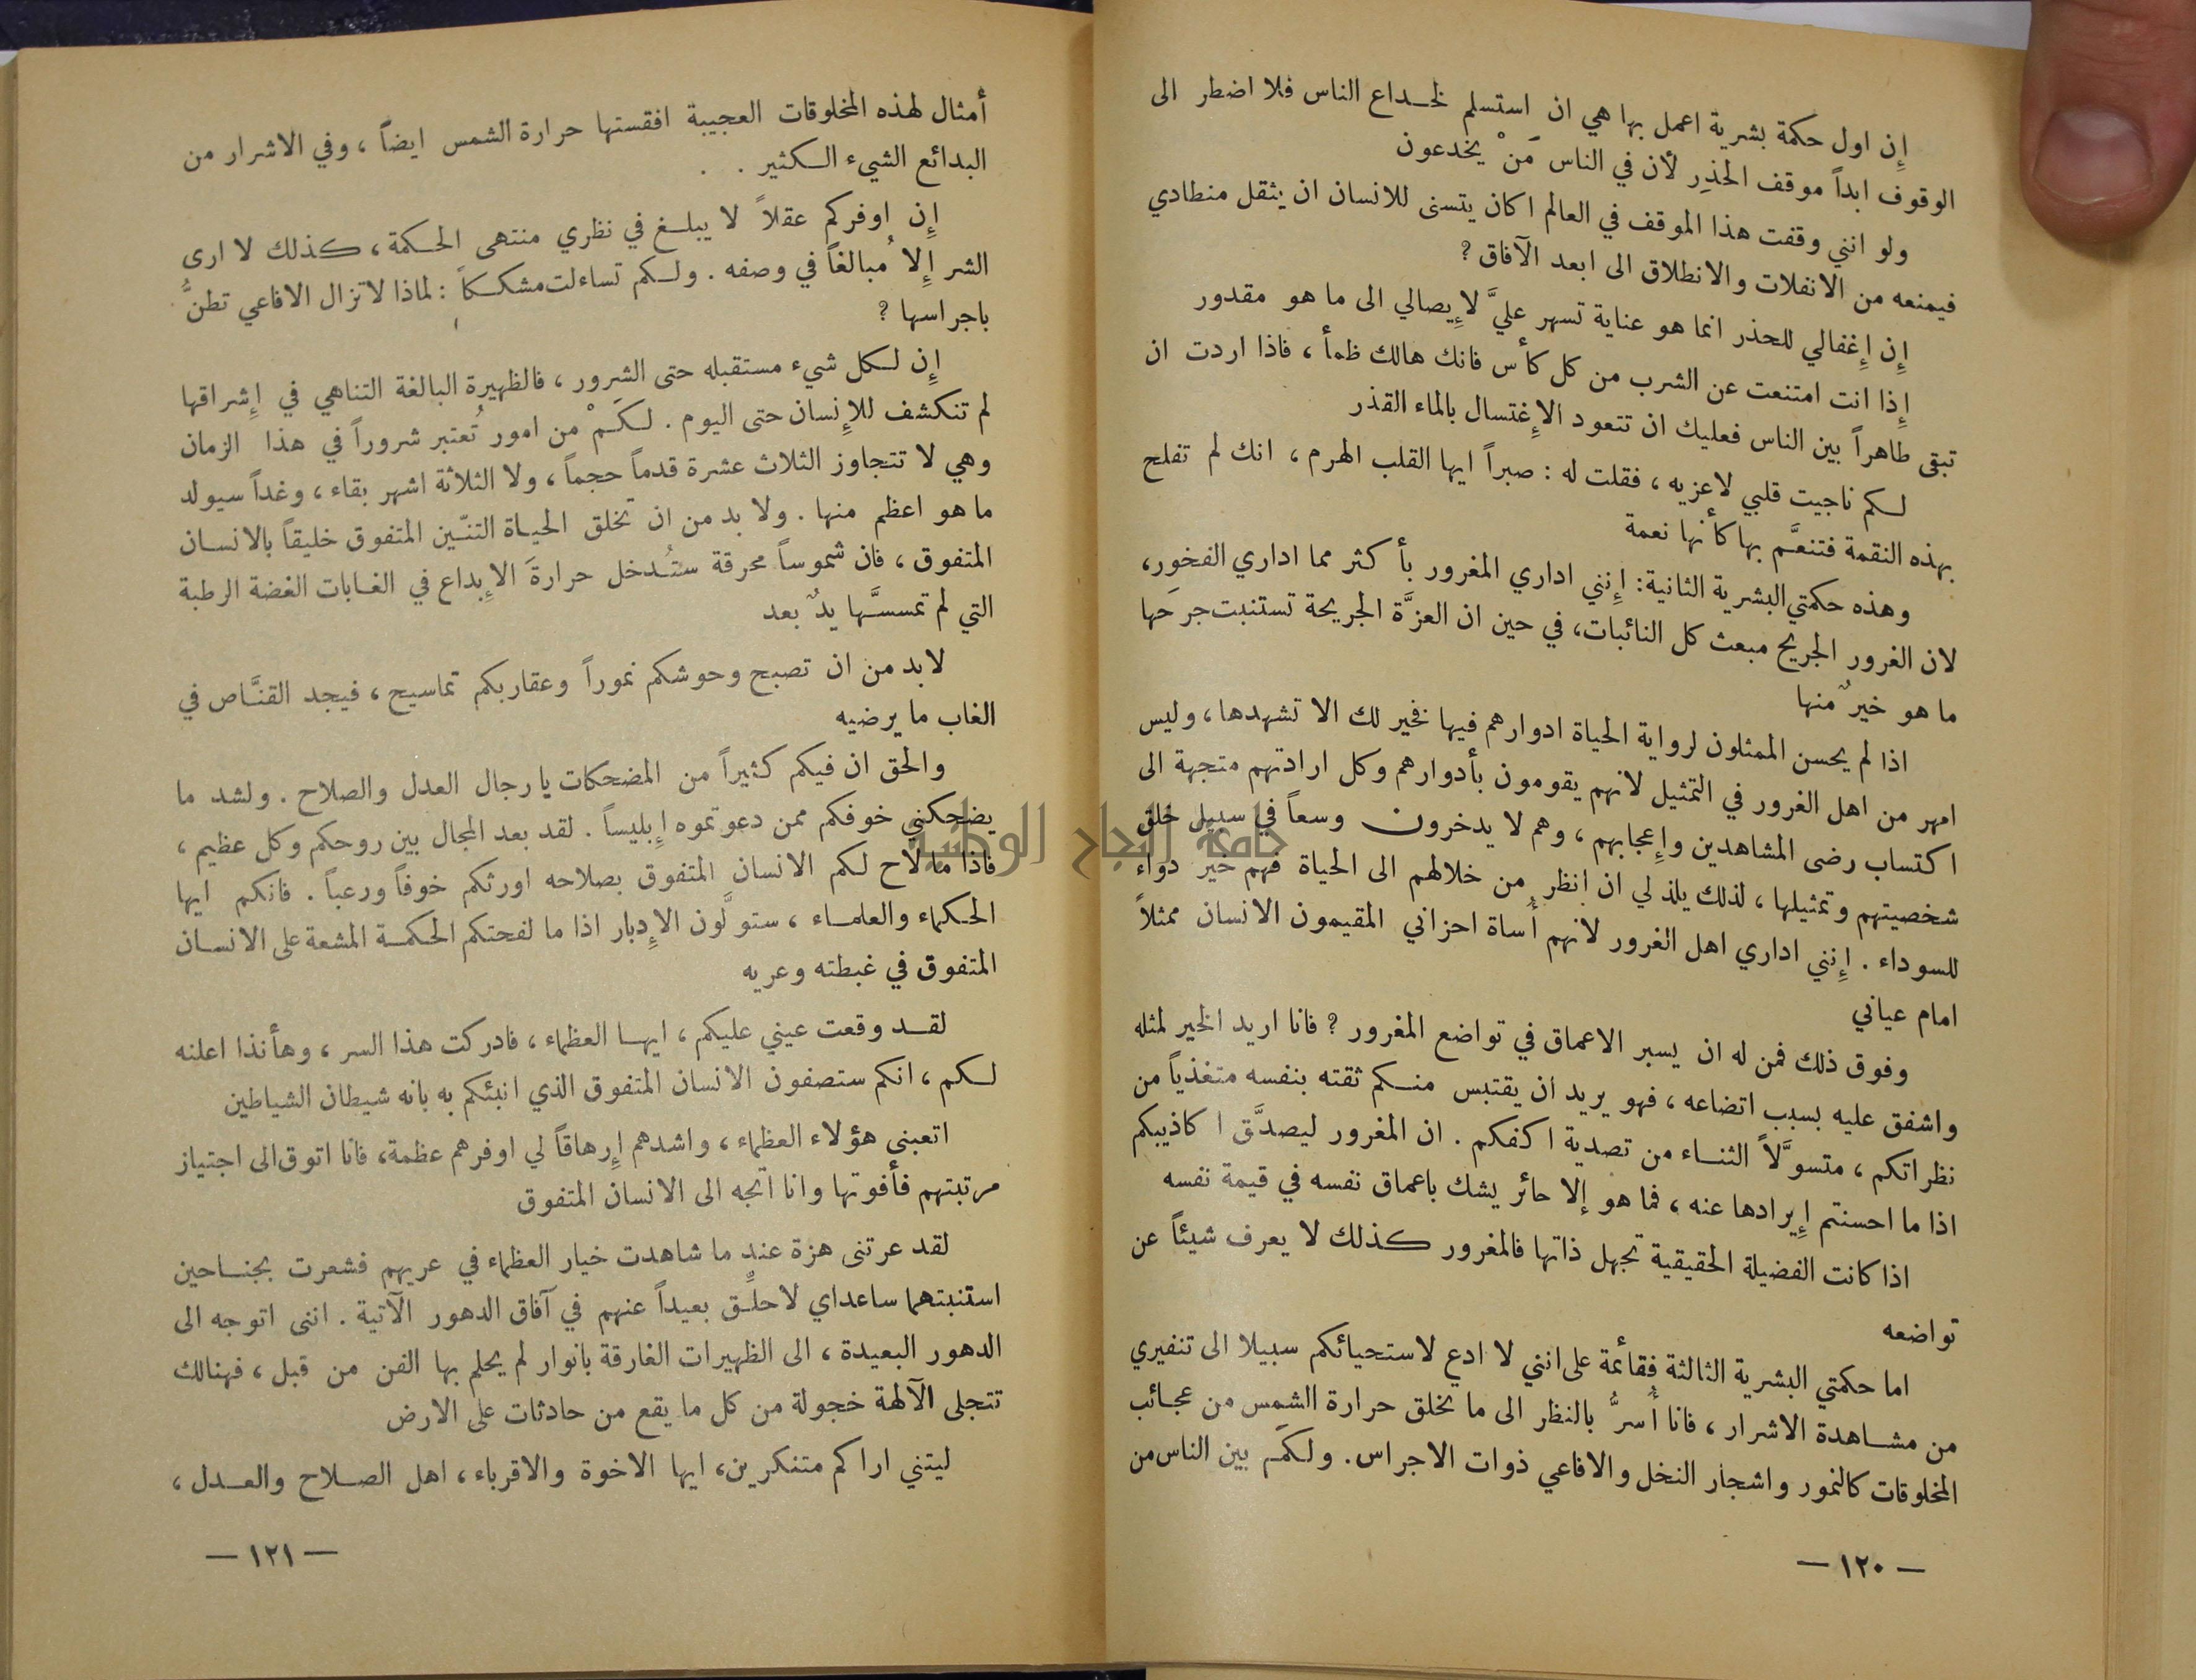 إِن اول حكمة بشرية اعمل بها هي ان استسلم لخـداع الناس فلا اضطر الى
الوقوف ابداً موقف الحذِر لأن في الناس مَنْ يخدعون
ولو انني وقفت هذا الموقف في العالم اكان يتسنى للانسان ان يثقل منطادي
فيمنعه من الانفلات والانطلاق الى ابعد الآفاق ?
إِن إِغفالي للحذر انما هو عناية تسهر عليَّ لاِيصالي الى ما هو مقدور
إِذا انت امتنعت عن الشرب من كل كأس فانك هالك ظمأ ، فاذا اردت ان
تبقى طاهراً بين الناس فعليك ان تتعود الاِغتسال بالماء القذر
لـكم ناجيت قلبي لاعزيه ، فقلت له : صبراً ايها القلب الهرم ، انك لم تفلح
بهذه النقمة فتنعَّم بها كأنها نعمة
وهذه حكمتي البشرية الثانية : إِنني اداري المغرور بأ كثر مما اداري الفخور ،
لان الغرور الجريح مبعث كل النائبات ، في حين ان العزَّة الجريحة تستنبت جرحها
ما هو خيرٌ منها
اذا لم يحسن الممثلون لرواية الحياة ادوارهم فيها نخير لك الا تشهدها ، وليس
امهر من اهل الغرور في التمثيل لانهم يقومون بأدوارهم وكل ارادتهم متجهة الى
اكتساب رضى المشاهدين وإِعجابهم ، وهم لا يدخرون وسعاً في سبيل خلق
شخصيتهم وتمثيلها ، لذلك يلذ لي ان انظر من خلالهم الى الحياة فهم خير دواء
للسوداء . إِنني اداري اهل الغرور لانهم أُساة احزاني المقيمون الانسان ممثلاً
امام عياني
وفوق ذلك فمن له ان يسبر الاعماق في تواضع المغرور ? فانا اريد الخير لمثله
واشفق عليه بسبب اتضاعه ، فهو يريد ان يقتبس منـكم ثقته بنفسه متغذياً من
نظراتكم ، متسوّلاً الثنـاء من تصدية اكفكم . ان المغرور ليصدَّق اكاذيبكم
اذا ما احسنتم إِيرادها عنه ، فما هو إلا حائر يشك باعماق نفسه في قيمة نفسه
اذا كانت الفضيلة الحقيقية تجهل ذاتها فالمغرور كذلك لا يعرف شيئاً عن
تواضعه
اما حكمتي البشرية الثالثة فقائمة على انني لا ادع لاستحيائكم سبيلا الى تنفيري
من مشـاهدة الاشرار ، فانا أُسرُّ بالنظر الى ما تخلق حرارة الشمس من عجائب
المخلوقات كالنمور واشجار النخل والافاعي ذوات الاجراس . ولـكَم بين الناس من
— ١٢٠ —
أمثال لهذه المخلوقات العجيبة افقستها حرارة الشمس ايضاً ، وفي الاشرار من
البدائع الشيء الـكثير . .
إِن اوفركم عقلاً لا يبلـغ في نظري منتهى الحـكمة ، كذلك لا ارى
الشر إِلا مُبالغاً في وصفه . ولـكم تساءلت مشككاً : لماذا لا تزال الافاعي تطنُّ
باجراسها ?
إِن لـكل شيء مستقبله حتى الشرور ، فالظهيرة البالغة التناهي في إِشراقها
لم تنكشف للاِنسان حتى اليوم . لـكَمْ من امور تُعتبر شروراً في هذا الزمان
وهي لا تتجاوز الثلاث عشرة قدماً حجماً ، ولا الثلاثة اشهر بقاء ، وغداً سيولد
ما هو اعظم منها . ولا بد من ان تخلق الحيـاة التنـّين المتفوق خليقاً بالانسـان
المتفوق ، فان شموساً محرقة ستُدخل حرارةَ الاِبداع في الغـابات الغضة الرطبة
التي لم تمسسَّها يدٌ بعد
لابد من ان تصبح وحوشكم نموراً وعقاربكم تماسيح ، فيجد القنَّاص في
الغاب ما يرضيه
والحق ان فيكم كثيراً من المضحكات يا رجال العدل والصلاح . ولشد ما
يضحكني خوفكم ممن دعوتموه إِبليساً . لقد بعد المجال بين روحكم وكل عظيم ،
فاذا ما لاح لـكم الانسان المتفوق بصلاحه اورثكم خوفاً ورعباً . فانكم ايها
الحـكماء والعلمـاء ، ستولَّون الاِدبار اذا ما لفحتكم الحـكمـة المشعة على الانسـان
المتفوق في غبطته وعريه
لقـد وقعت عيني عليكم ، ايهـا العظماء ، فادركت هذا السر ، وهأنذا اعلنه
لـكم ، انكم ستصفون الانسان المتفوق الذي انبئكم به بانه شيطان الشياطين
اتعبنى هؤلاء العظماء ، واشدهم إِرهاقاً لي اوفرهم عظمة، فانا اتوق الى اجتياز
مرتبتهم فأفوتها وانا اتجه الى الانسان المتفوق
لقد عرتنى هزة عند ما شاهدت خيار العظماء في عريهم فشعرت بجنـاحين
استنبتهما ساعداي لاحلِّق بعيداً عنهم في آفاق الدهور الآتية . اننى اتوجه الى
الدهور البعيدة ، الى الظهيرات الغارقة بانوار لم يحلم بها الفن من قبل ، فهنالك
تتجلى الآلهة خجولة من كل ما يقع من حادثات على الارض
ليتني اراكم متنكرين، ايها الاخوة والاقرباء ، اهل الصـلاح والعـدل ،
— ١٢١ —
جامعة النجاح الوطنية